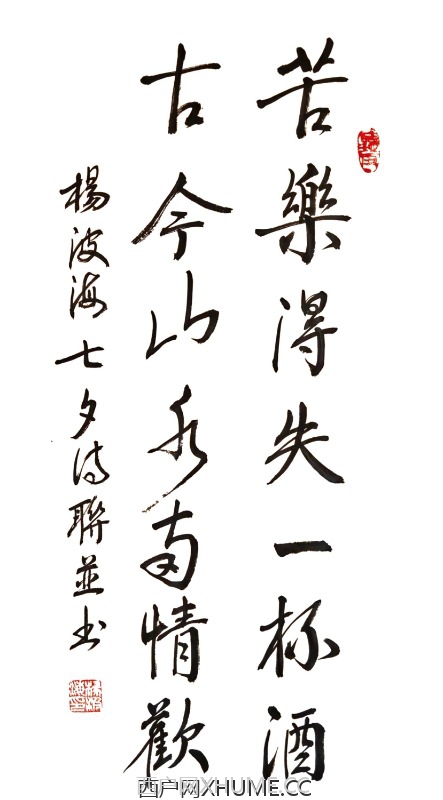 苦樂得失一杯酒
古今山水兩情歡
楊波海七夕聯並書
西户网XHUME.CC